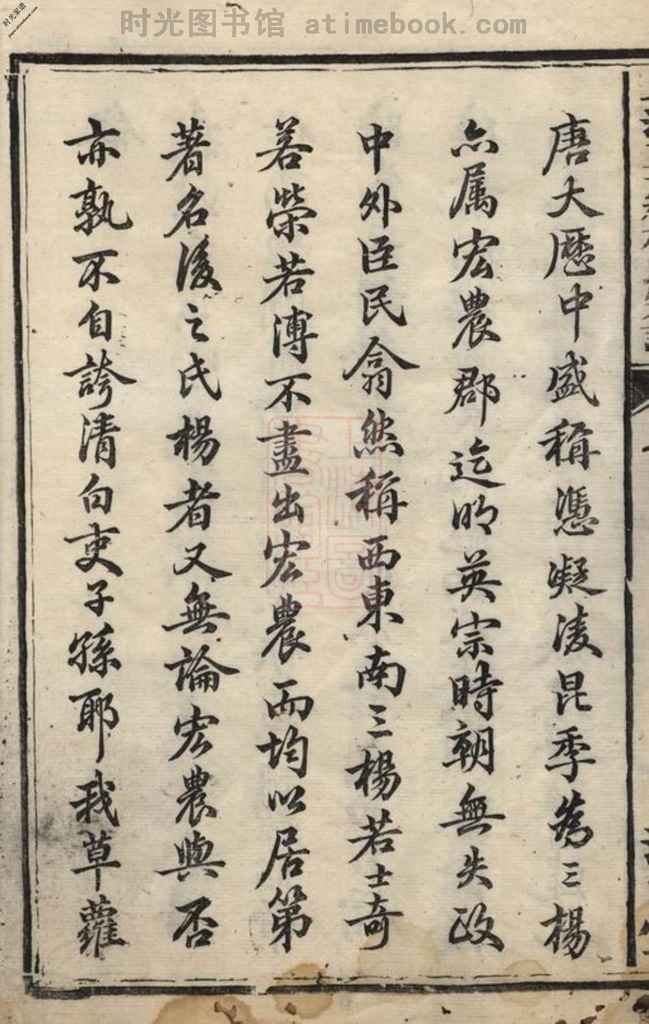 时光图书馆 atimebook.com
唐大歷中盛稱憑凝淩昆季為三楊
亦属宏農郡迄明英宗時朝無失政
中外臣民翕然稱西東南三楊若士奇
若榮若溥不盡出宏農而均以居第
著名後之氏楊者又無論宏農與否
亦孰不自誇清白吏子孫耶我草蘿